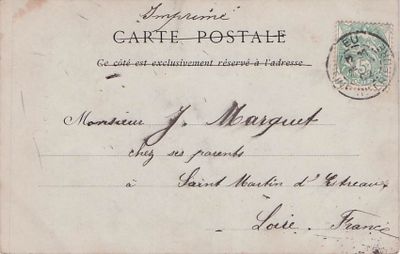 Imprimé
CARTE POSTALE
Ce côté est exclusivement réservé à l'adresse
EU
5
Monsieur J. Marguet
chez ses parents
à Saint Martin d'Estreaux
Loire. France